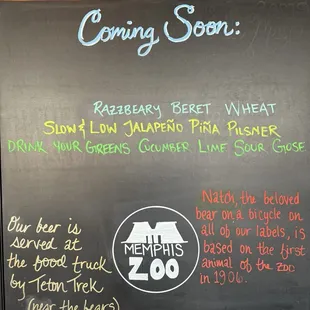 Coming Soon:
RAZZBEARY BERET WHEAT
SLOW & LOW JALAPEÑO PIÑA PILSNER
DRINK YOUR GREENS CUCUMBER LIME SOUR GOSE
Our beer is
served at
the food truck
by Teton Trek
(near the bears)
MEMPHIS
ZOO
Natch, the beloved
bear on a bicycle on
all of our labels, is
based on the first
animal of the ZOO
in 1906.